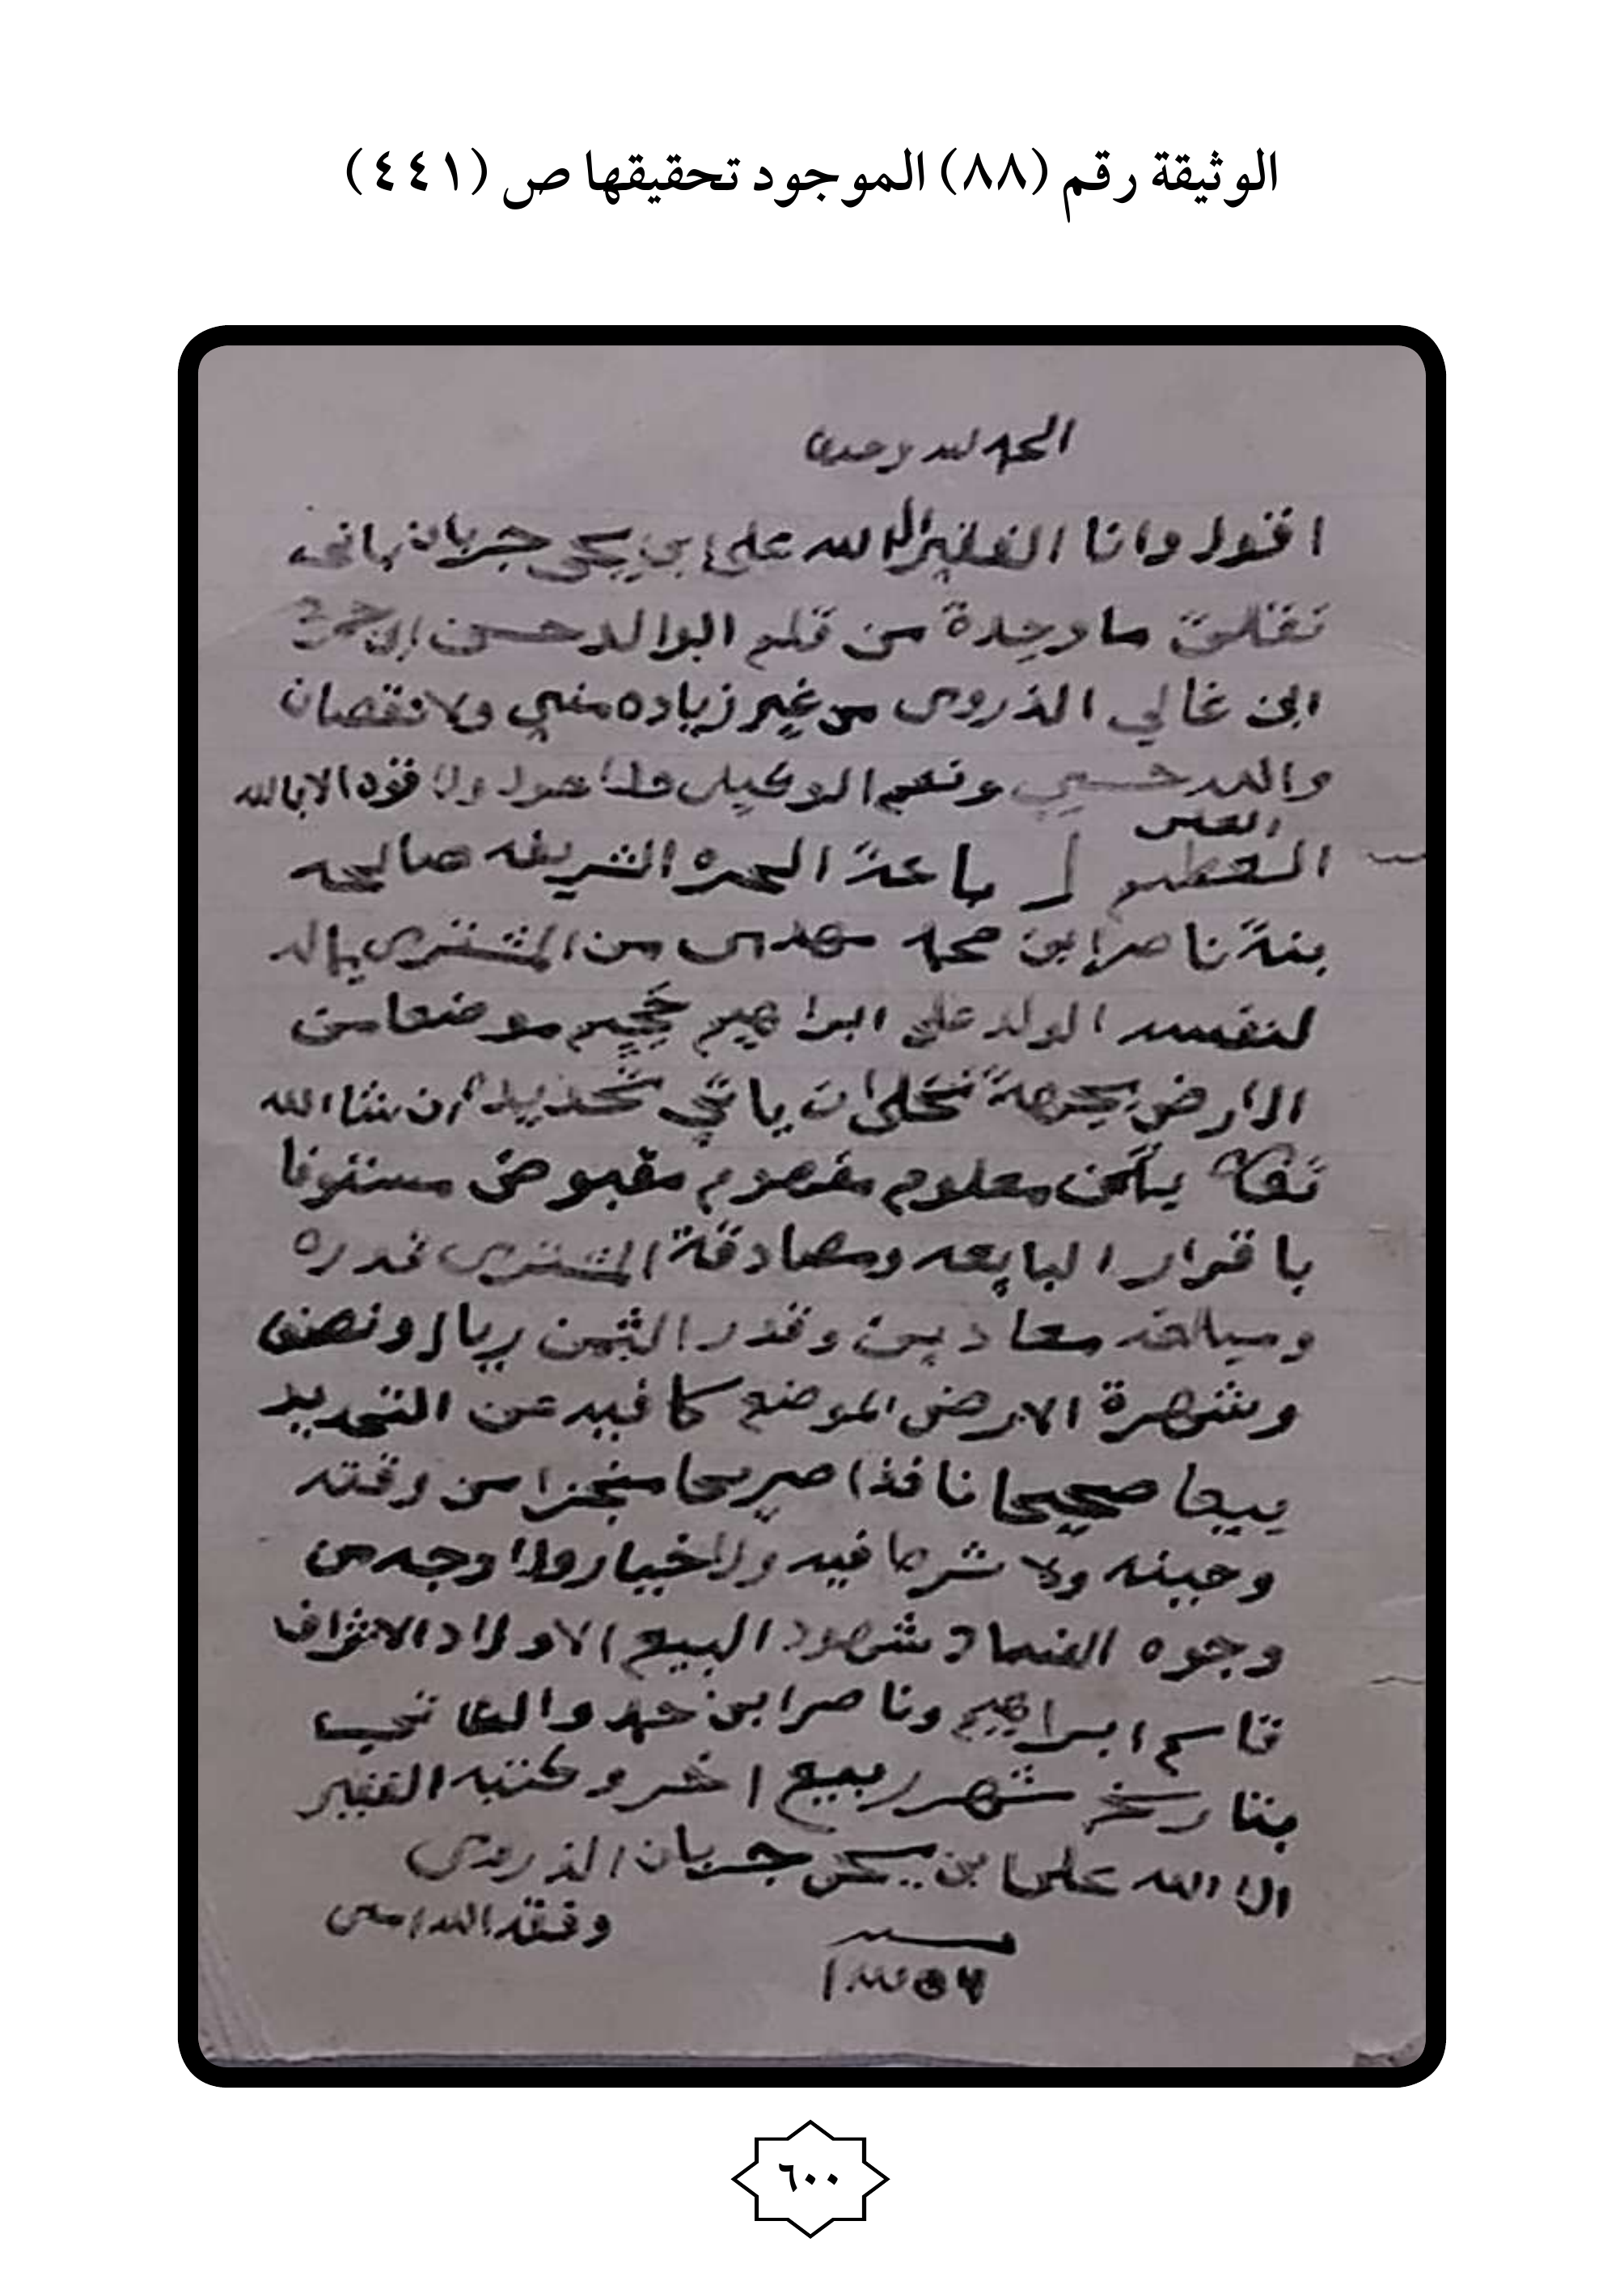 الوثيقة رقم (٨٨) الموجود تحقيقها ص (٤٤١)
الحمد لله وحده
اقول وانا الفقير الى الله علي ابن يحي جربان بانى
نقلت ما وجدة من قلم الوالد حسن ابن
ابن غالي الذروى من غير زياده مني ولا نقصان
والله حسبي ونعم الوكيل ولا حول ولا قوه الا بالله
العلى
العظيم باعة الحره الشريفه صالحه
بنة ناصر ابن محمد مهدى من المشترى
لنفسه الولد علي ابراهيم موضعا من
الارض بجهة نخلان ياتي تحديده ان شا الله
معلوم مقبوض مستوفا
باقرار البايعه ومصادقة المشترى قدره
ومبلغه وقدر الثمن ريال ونصف
وشهرة الارض الموضع كافيه عن التحديد
بيعا صحيحا نافذا صريحا منجزا من وقته
وحينه ولا شرط فيه ولا خيار ولا وجه من
وجوه الفساد شهود البيع الاولاد الاشراف
قاسم ابراهيم وناصر ابن حمد والكاتب
بتاريخ شهر ربيع اخر وكتبه الفقير
الا الله على ابن يحى جربان الذروى
وفقه الله امين
سنه
٦٠٠